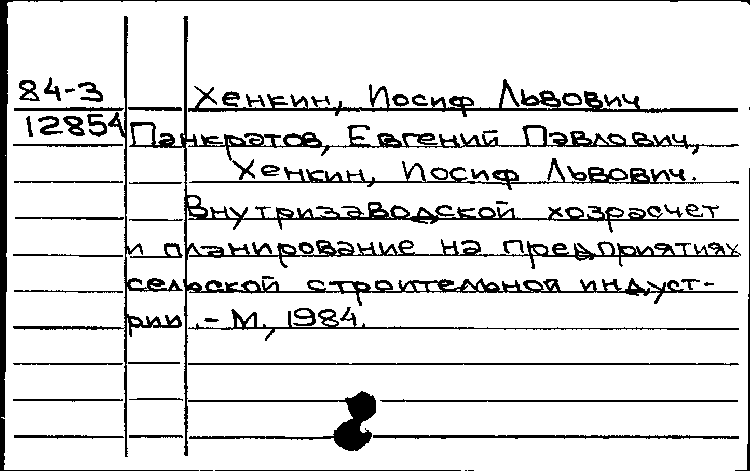 84-3 Хенкин, Иосиф Львович
12854 Панкратов, Евгений Павлович,
Хенкин, Иосиф Львович.
Внутризаводской хозрасчет
и планирование на предприятиях
сельской строительной индуст-
рии. - М., 1984.